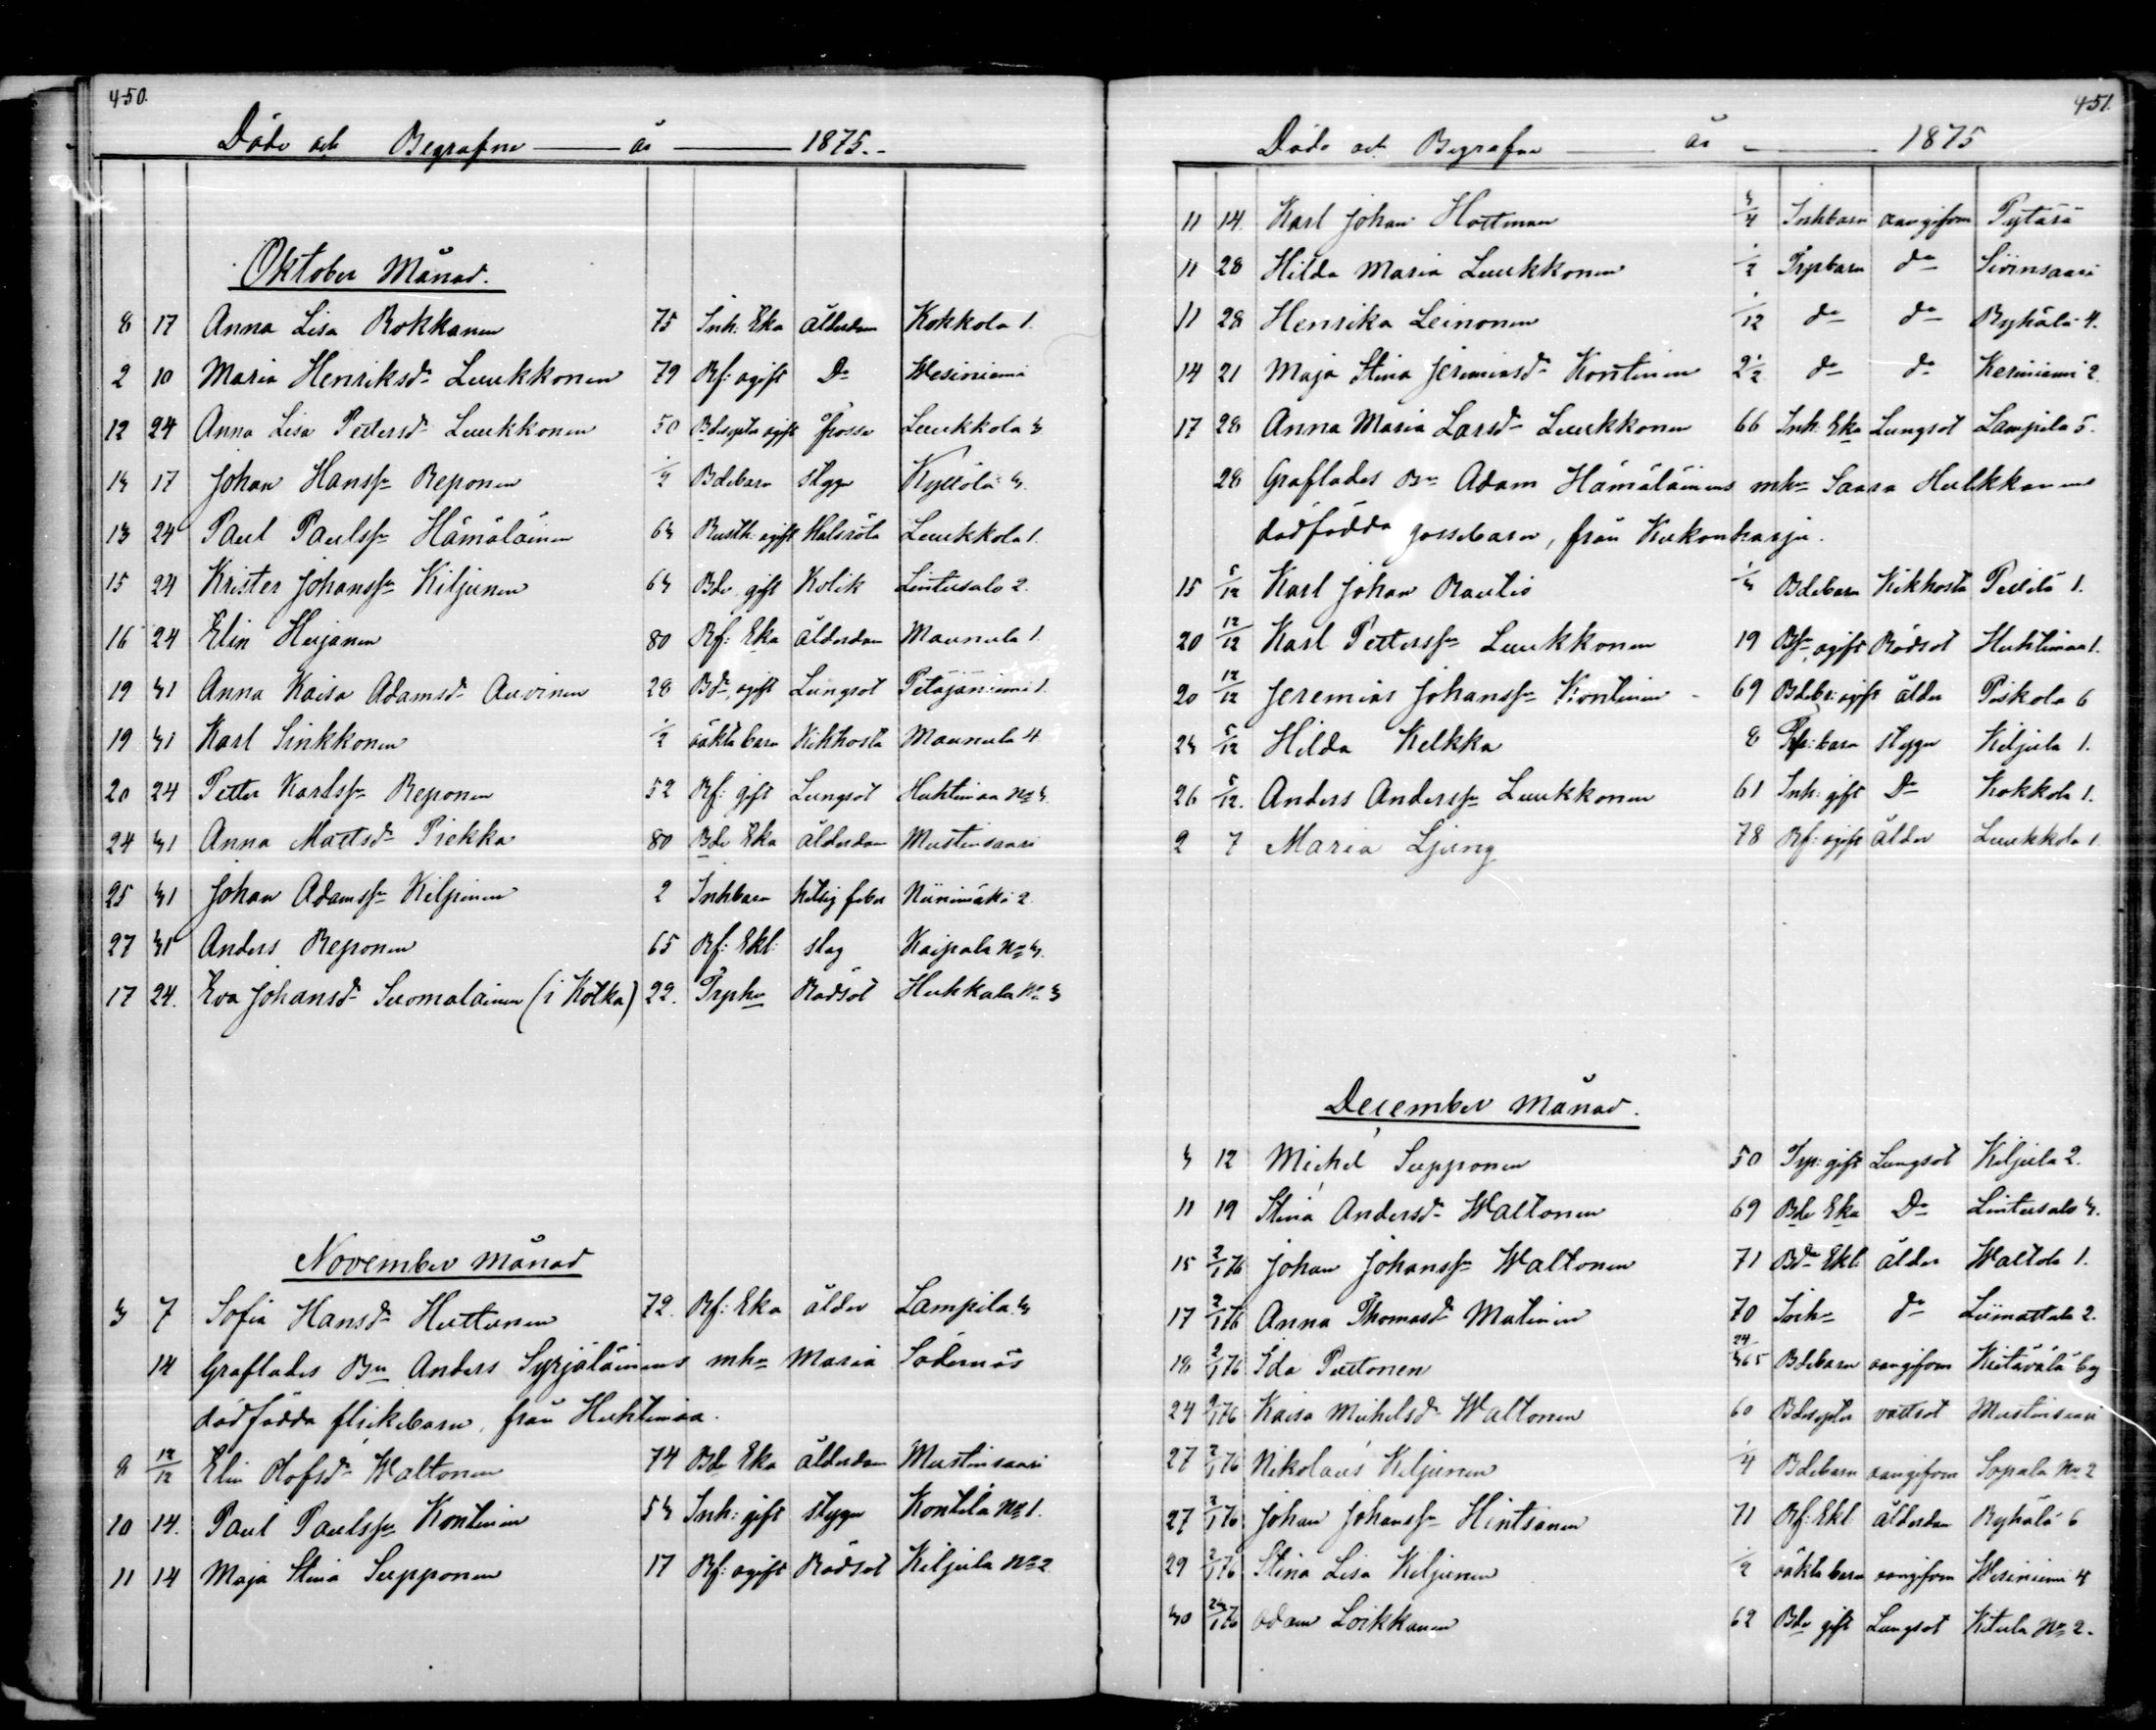 450.
Döde och Begrafne år 1875.
Oktober Månad.
8 17 Anna Lisa Rokkanen 75 Inh: Eka Ålderdom Kokkola 1.
2 10 Maria Henriksdr Luukkonen 79 Rf: ogift Do Wesiniemi
12 24 Anna Lisa Pettersdr Luukkonen 50 ogift frossa Luukkola 3.
13 17 Johan Hansson Reponen 1/2 Bdebarn stygn Kyllölä 3.
13 24 Paul Paulsson Hämäläinen 63 Rusth: ogift Halsröta Luukkola 1.
15 24 Krister Johansson Kiljunen 63 Bde gift Kolik Lintusalo 2.
16 24 Elin Heijanen 80 Rf: Eka ålderdom Maunula 1.
19 31 Anna Kaisa Adamsdr Auvinen 28 Bdr, ogift Lungsot Petäjäniemi 1.
19 31 Karl Sinkkonen 1/2 oäkta barn Kikhosta Maunula 4.
20 24 Petter Karlsson Reponen 52 Rf: gift Lungsot Huhtimaa No 3.
24 31 Anna Mattsdr Piekka 80 Bde Eka ålderdom Mustinsaari
25 31 Johan Adamsson Kiljunen 2 Inhbarn Hetsig feber Niinimäki 2
27 31 Anders Reponen 65 Rf: Ekl: slag Kaipala No 3.
17 24. Eva Johansdr Suomalainen (i Kotka) 22. Rödsot Huhkala No 3
November månad
3 7 Sofia Hansdr Huttunen 72. Rf: Eka ålder Lampila 3
14 Graflades Bn Anders Syrjäläinens mhu Maria Södernäs
dödfödda flickebarn, från Huhtimaa.
8 12/12 Elin Olofsdr Waltonen 74 Bde Eka Ålderdom Mustinsaari
10 14. Paul Paulsson Kontinen 53 Inh: gift stygn Kontila No 1.
11 14 Maja Stina Supponen 17 Rf: ogift Rödsot Kiljula No 2
451.
Döde och Begrafne år 1875
11 14. Karl Johan Hottinen 3/4 Inhbarn oangifven
11 28 Hilda Maria Luukkonen 1/2 Trpbarn do
11 28 Henrika Leinonen 1/12 do do Ryhälä 4.
14 21 Maja Stina Jeremiasdr Kontinen 2 1/2 do do Kerimiemi 2.
17 28 Anna Maria Larsdr Luukkonen 66 Inh: Eka Lungsot Lampila 5.
28 Graflades Bn Adam Hämäläinens mhu Saara Hulkkonens
dödfödda gossebarn, från Kukonharju.
15 5/12 Karl Johan Rautio 1/3 Bdebarn Kikhosta Pellilä 1.
20 12/12 Karl Pettersson Luukkonen 19 Bsn, ogift Rödsot Huhtimaa 1.
20 12/12 Jeremias Johansson Kontinen 69 ogift ålder Piskola 6
23 5/12 Hilda Kelkka 8 Trp: barn stygn Kiljula 1.
26 5/12. Anders Andersson Luukkonen 61 Inh: gift Do Kokkola 1.
2 7 Maria Ljung 78 Rf: ogift ålder Luukkola 1
December månad.
3 12 Michel Supponen 50 Trp: gift Lungsot Kiljula 2.
11 19 Stina Andersdr Waltonen 69 Bde Eka Do Lintusalo 3.
15 2/1 76 Johan Johansson Waltonen 71 Bde Ekl: ålder Waltola 1.
17 2/1 76 Anna Thomasdr Matinen 70 Inh do Liimattala 2.
18 2/1 76 Ida Puttonen 24/365 Bdebarn oangifven Kietävälä by
24 9/1 76 Kaisa Michelsdr Waltonen 60 vattsot Mustinsaari
27 2/1 76 Nikolaus Kiljunen 1/4 Bdebarn oangifven Sopala No 2
27 2/1 76 Johan Johansson Hintsanen 71 Rf: Ekl ålderdom Ryhälä 6
29 2/1 76 Stina Lisa Kiljunen 1/2 oäkta barn oangifven Wesiniemi 4
30 23/1 76 Adam Loikkanen 62 Bde gift Lungsot Kitula No 2.